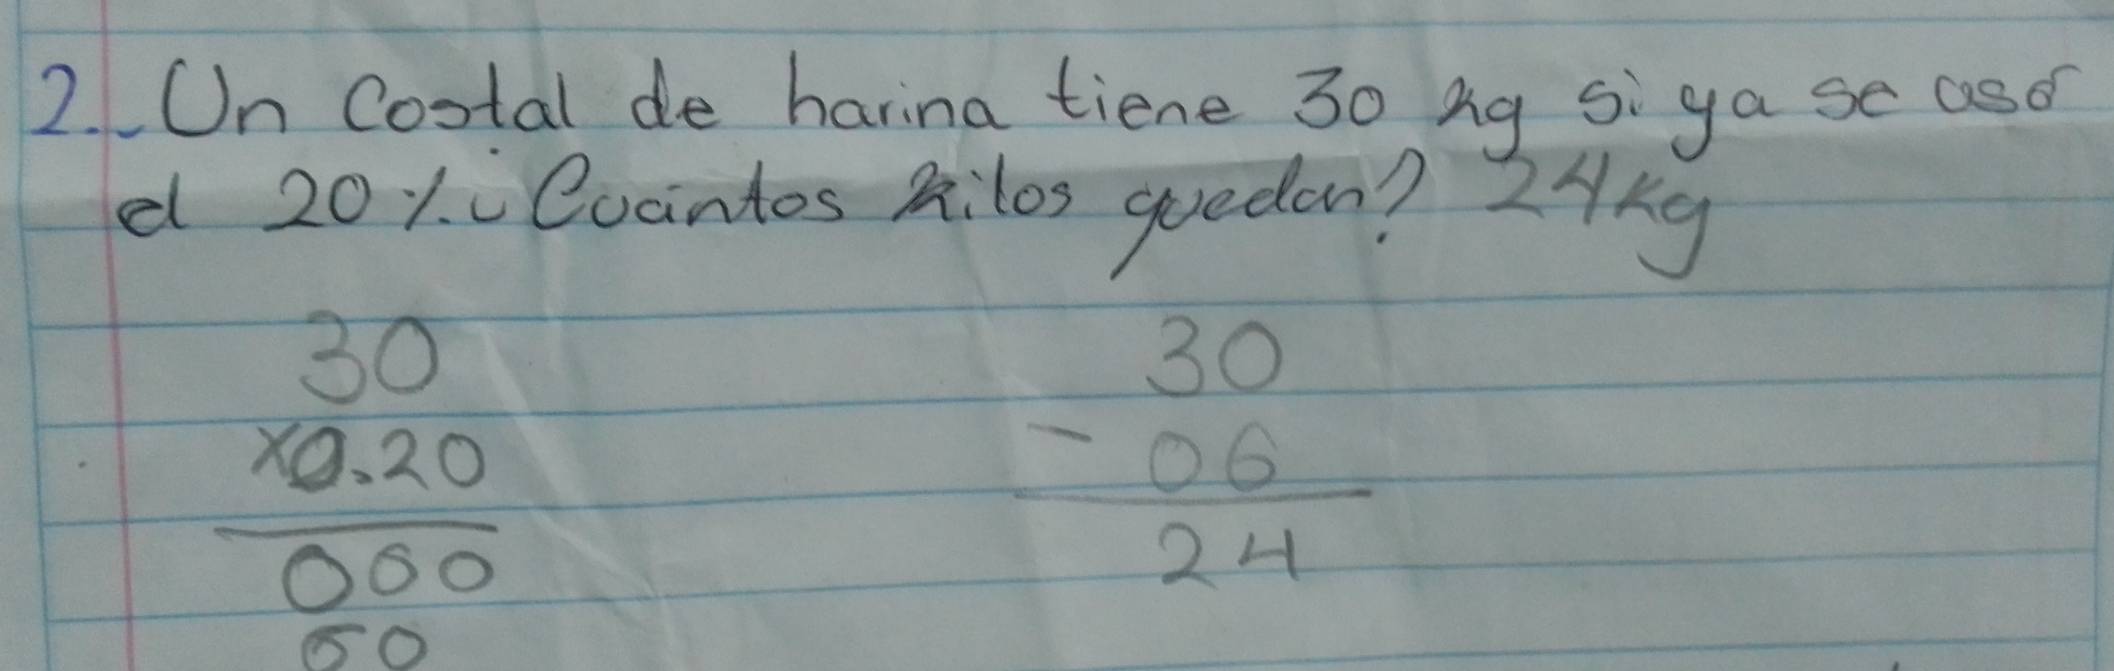 2.- Un Costal de harina tiene 30 kg si ya se usó
el 20%. ¿Cuántos kilos quedan? 24kg
30 30
x0.20 - 06
000 24
60